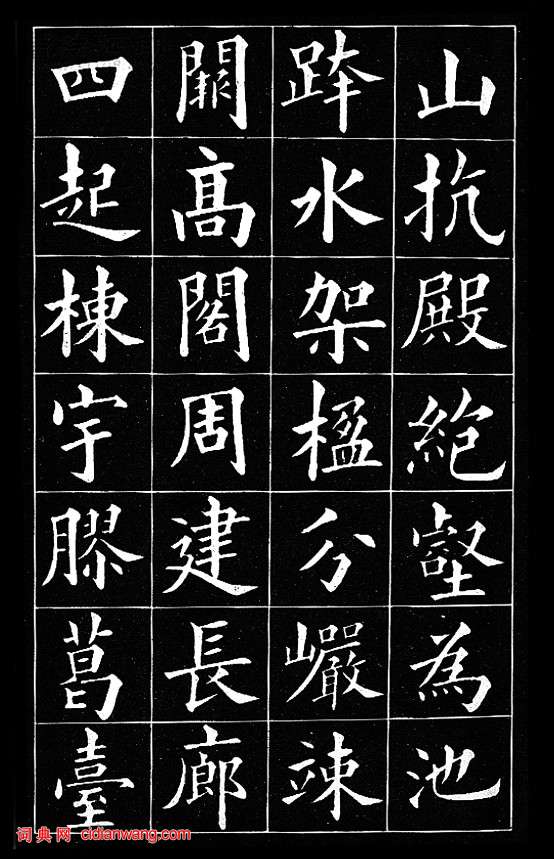 山抗殿絶壑為池
跨水架楹分巖竦
闕高閣周建長廊
四起棟宇膠葛臺
词典网 cidianwang.com